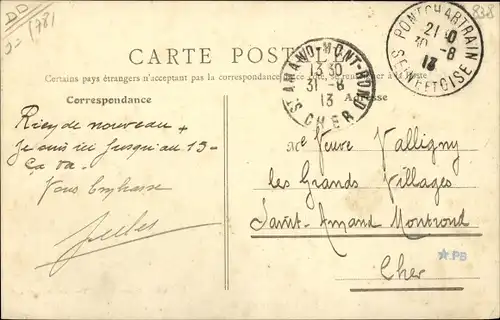 DD
22 (78)
838
CARTE POSTALE
Certains pays étrangers n'acceptent pas la correspondance
à la Poste
Correspondance
Adresse
ST AMAND-MONT-ROND
13 30
31 - 8
13
CHER
PONTCHARTRAIN
21 0
30 - 8
13
SEINE ET OISE
Rien de nouveau +
Je suis ici jusqu'au 15-
Ca va.
Vous Embrasse
Jules
Veuve Valligny
les Grands Villages
Saint-Amand Montrond
Cher
PB